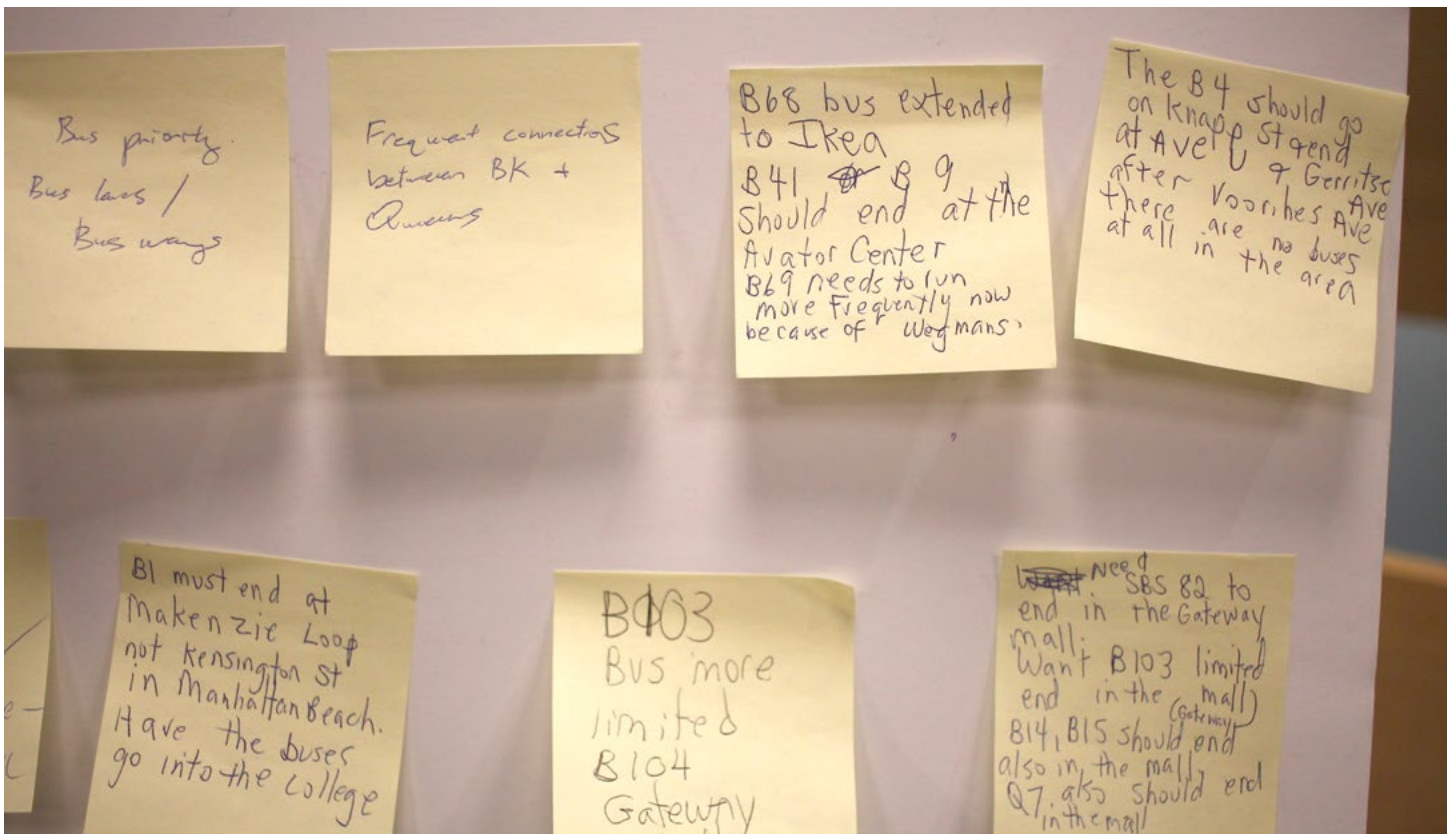 Bus priority.
Bus lanes /
Bus ways
Frequent connections
between BK +
Queens
B68 bus extended
to Ikea
B41 B 9
Should end at the
Avator Center
B69 needs to run
more Frequently now
because of Wegmans.
The B4 should go
on Knapp St & end
at Ave U & Gerritse
after Voorihes Ave Ave
there are no buses
at all in the area
B1 must end at
Makenzie Loop
not Kensington St
in Manhattan Beach.
Have the buses
go into the college
B103
Bus more
limited
B104
Gateway
Need SBS 82 to
end in the Gateway
mall.
Want B103 limited
end in the mall
(Gateway)
B14, B15 should end
also in the mall,
Q7, also should end
in the mall